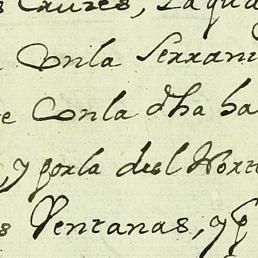 Cruzes, La qua
Con la Serrani
e Con la dha ha
, y por la del Nort
s Ventanas, y